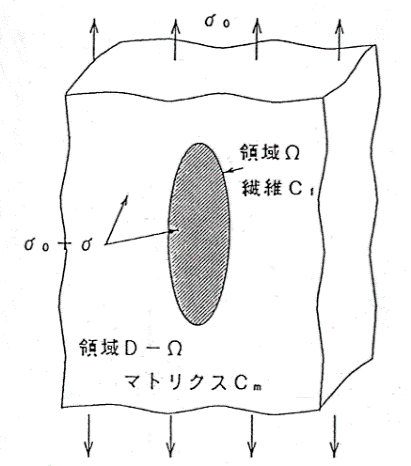 σ₀
領域Ω
繊維C f
σ₀ + σ
領域D－Ω
マトリクスC m